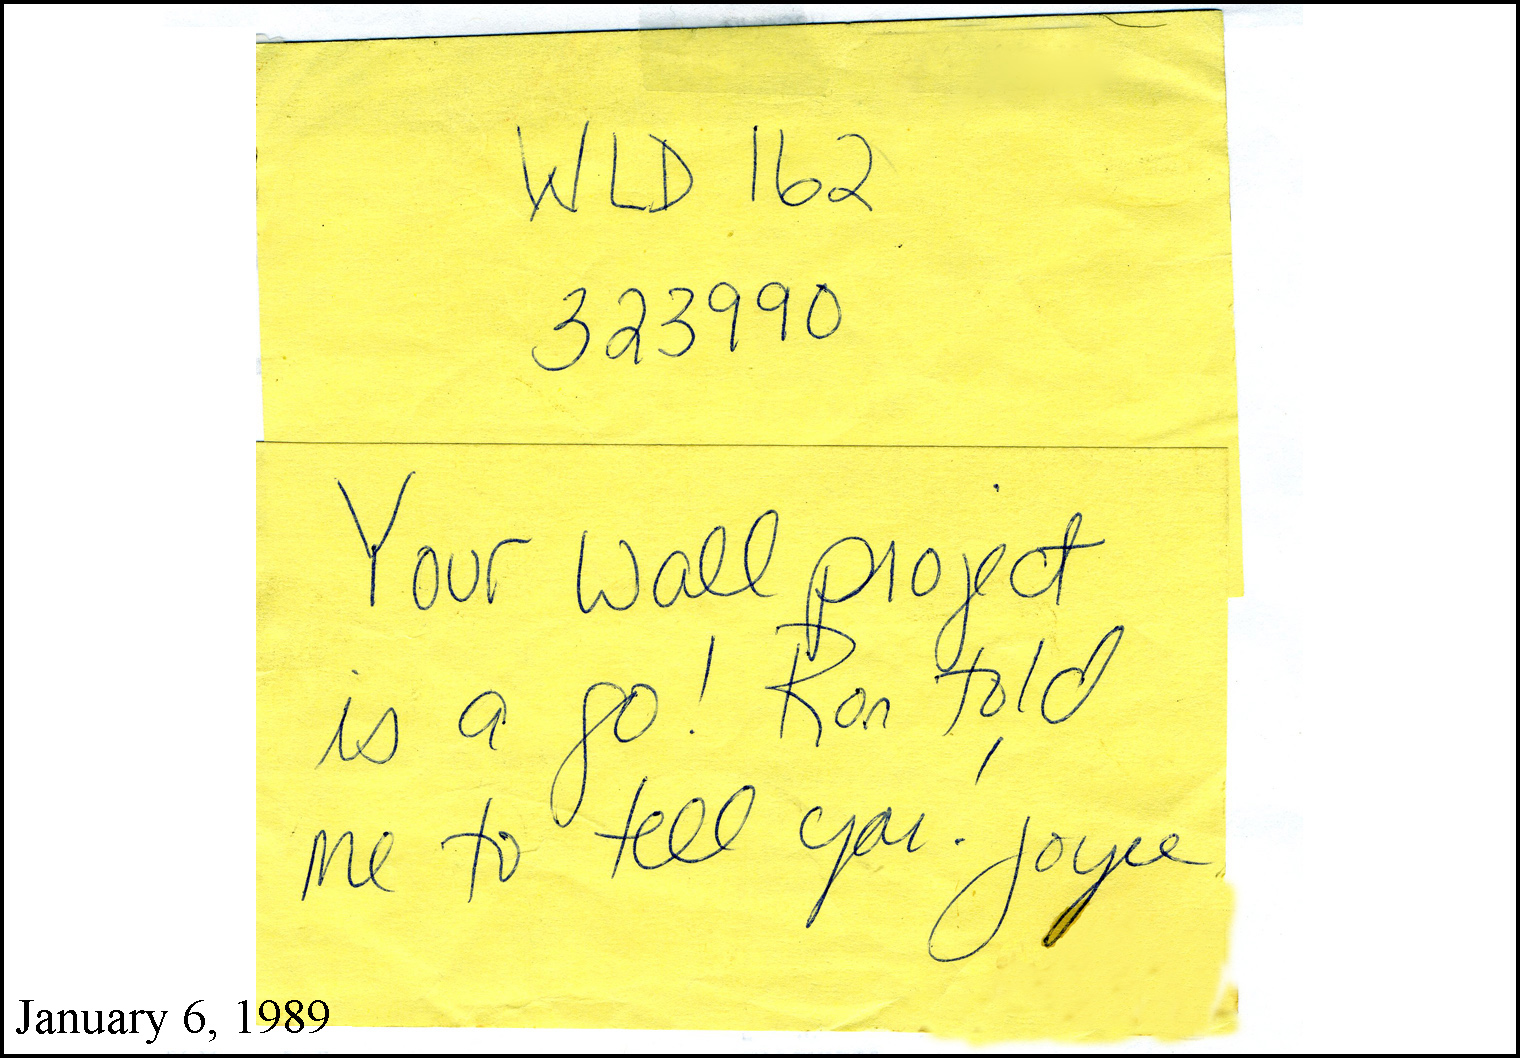 WLD 162
323990
Your wall project
is a go! Ron told
me to tell you. Joyce
January 6, 1989